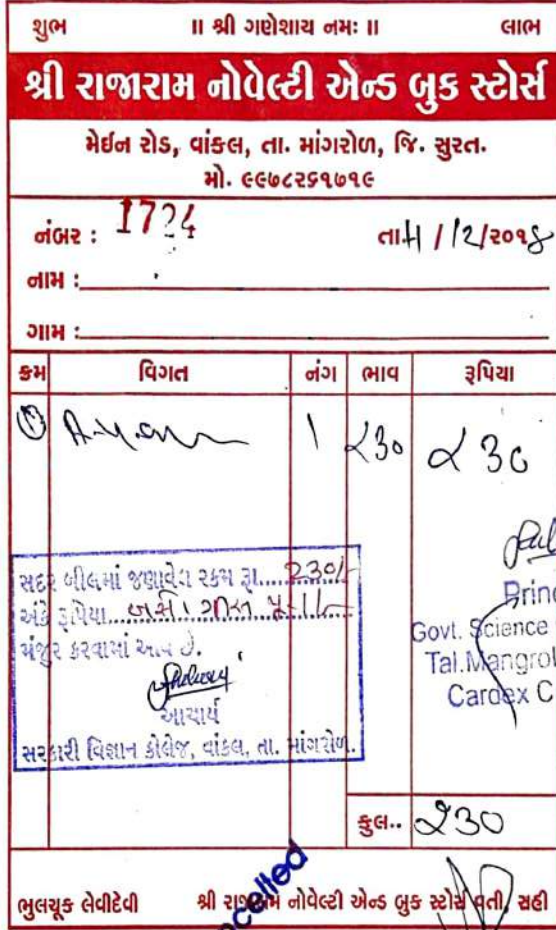 શુભ ॥ શ્રી ગણેશાય નમઃ ॥ લાભ
શ્રી રાજારામ નોવેલ્ટી એન્ડ બુક સ્ટોર્સ
મેઈન રોડ, વાંકલ, તા. માંગરોળ, જિ. સુરત.
મો. ૯૯૭૮૨૬૧૭૧૯
નંબર : 1724 તા. /12/૨૦૧૪
નામ :
ગામ :
ક્રમ વિગત નંગ ભાવ રૂપિયા
① 1 ૨30 ૨30
સદર બીલમાં જણાવેલ રકમ રૂા. 230/-
અંકે રૂપિયા બસો ત્રીસ પૂરા
મંજુર કરવામાં આવે છે.
આચાર્ય
સરકારી વિજ્ઞાન કોલેજ, વાંકલ, તા. માંગરોળ.
Princ
Govt. Science
Tal.Mangrol
Cardex C
કુલ.. ૨30
ncelled
ભુલચૂક લેવીદેવી શ્રી રાજારામ નોવેલ્ટી એન્ડ બુક સ્ટોર્સ વતી, સહી